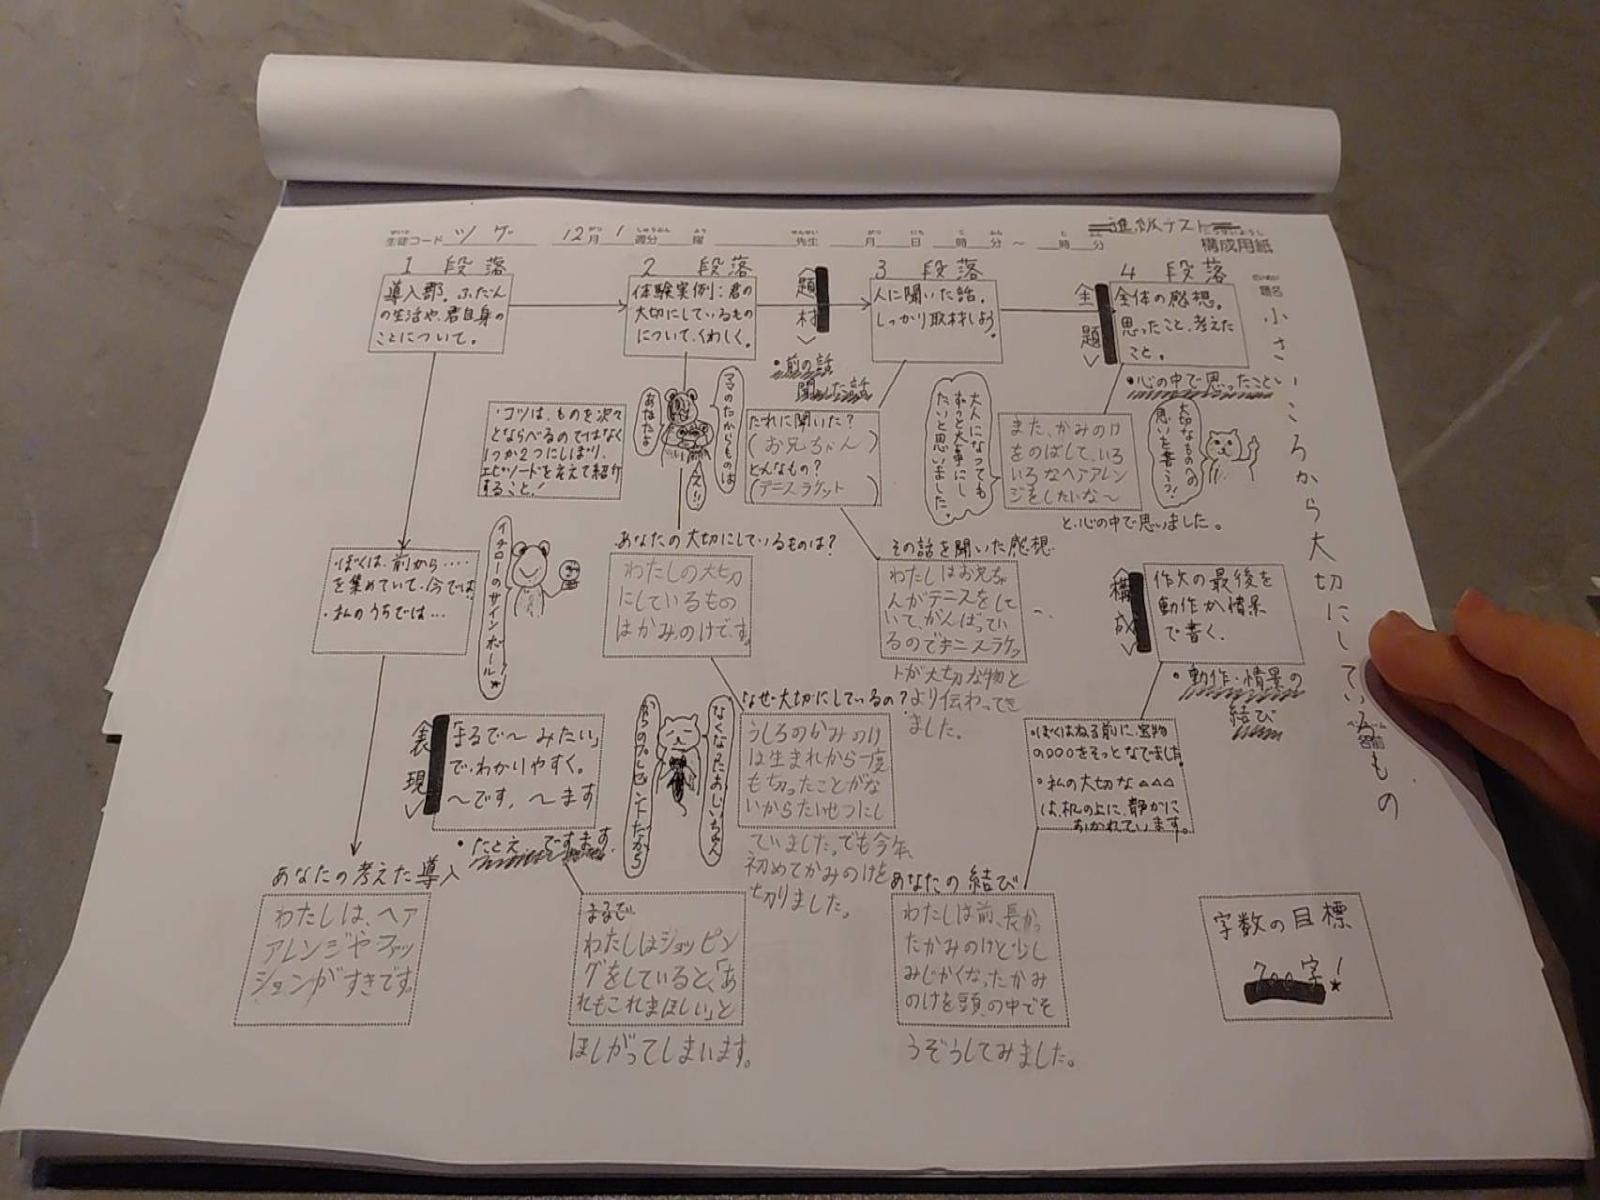 進級テスト
構成用紙
生徒コード ツゲ 12月1週分 曜 先生 月 日 時 分〜 時 分
題名 小さいころから大切にしているもの
名前
1 段落
導入部。ふだん
の生活や、君自身の
ことについて。
・ぼくは、前から‥‥
を集めていて、今では
・私のうちでは…
あなたの考えた導入
わたしは、ヘア
アレンジやファッ
ションがすきです。
2 段落
体験実例:君の
大切にしているもの
について、くわしく。
・コツは、ものを次々
とならべるのではなく
1つか2つにしぼり、
エピソードを交えて紹介
すること!
ママのたからものは
あなたよ
え!!
イチローのサインボール★
あなたの大切にしているものは?
わたしの大切
にしているもの
はかみのけです。
なぜ大切にしているの?
うしろのかみのけ
は生まれから一度
も切ったことがな
いからたいせつにし
ていました。でも今年、
初めてかみのけを
切りました。
なくなったおじいちゃん
からのプレゼントだから
表現
「まるで〜みたい」
で、わかりやすく。
〜です、〜ます
・たとえ、ですます
まるで
わたしはショッピン
グをしていると、「あ
れもこれもほしい」と
ほしがってしまいます。
題材
・前の話
聞いた話
3 段落
人に聞いた話。
しっかり取材しよう。
だれに聞いた?
(お兄ちゃん)
どんなもの?
(テニスラケット)
その話を聞いた感想
わたしはお兄ちゃ
んがテニスをして
いて、がんばってい
るのでテニスラケッ
トが大切な物と
より伝わってき
ました。
主題
4 段落
全体の感想。
思ったこと、考えた
こと。
・心の中で思ったこと
大切なものへの
思いを書こう!
大人になっても
ずっと大事にし
たいと思いました。
また、かみのけ
をのばして、いろ
いろなヘアアレン
ジをしたいな〜
と、心の中で思いました。
構成
作文の最後を
動作か情景
で書く。
・動作・情景の
結び
・ぼくはねる前に、宝物
の○○○をそっとなでました。
・私の大切な△△△
は、机の上に、静かに
おかれています。
あなたの結び
わたしは前、長かっ
たかみのけと少し
みじかくなったかみ
のけを頭の中でそ
うぞうしてみました。
字数の目標
700字!